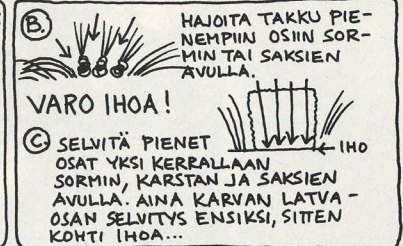 B. HAJOITA TAKKU PIE-
NEMPIIN OSIIN SOR-
MIN TAI SAKSIEN
AVULLA.
VARO IHOA!
C. SELVITÄ PIENET
OSAT YKSI KERRALLAAN
SORMIN, KARSTAN JA SAKSIEN
AVULLA. AINA KARVAN LATVA-
OSAN SELVITYS ENSIKSI, SITTEN
KOHTI IHOA...
IHO